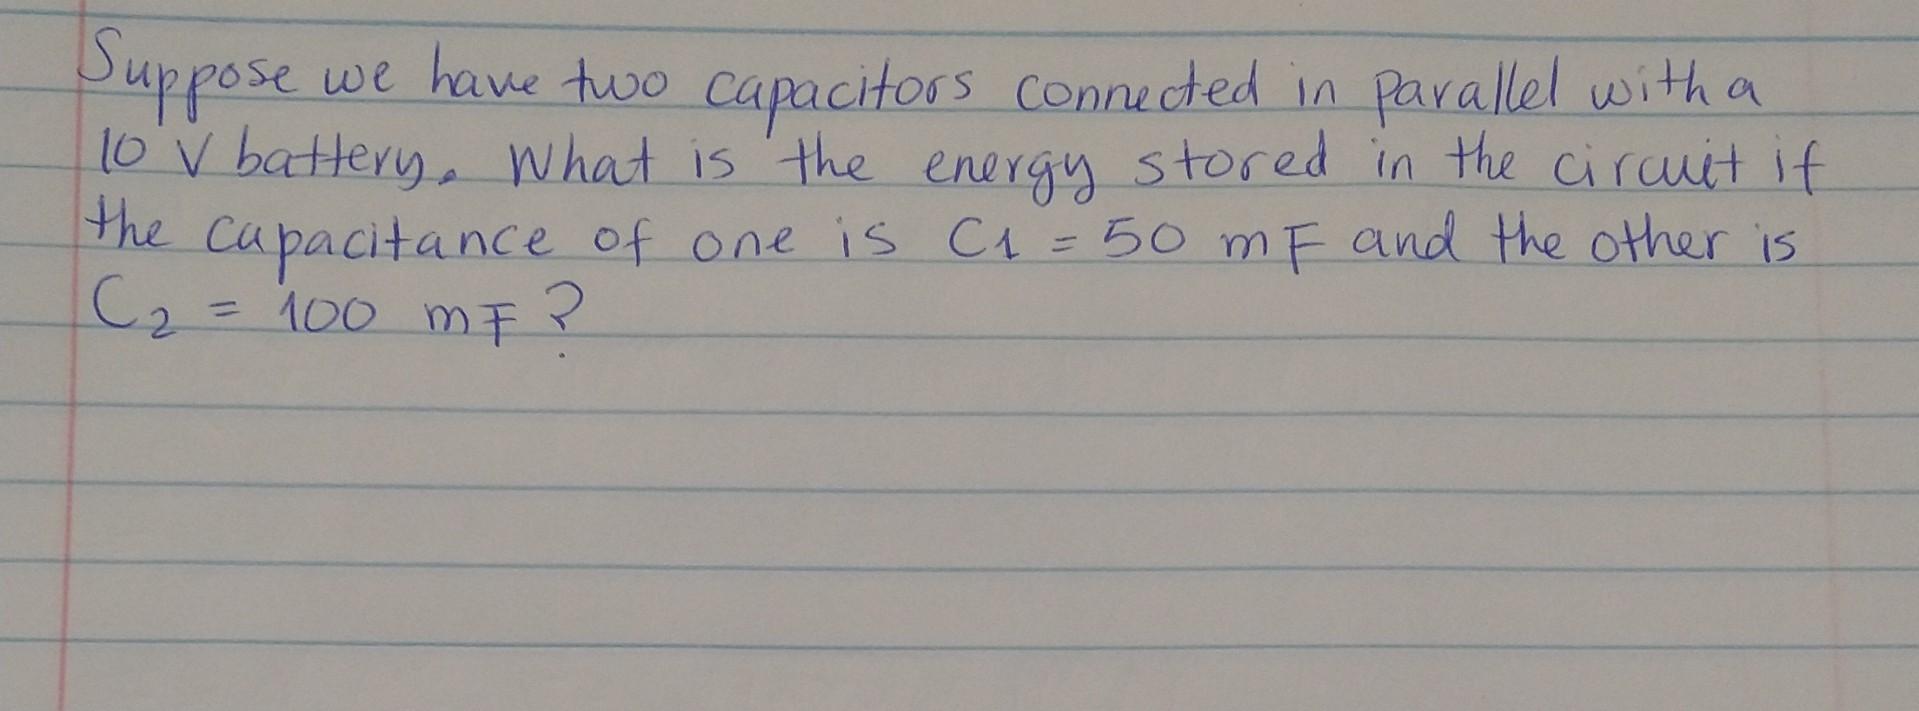 Suppose we have two capacitors connected in parallel with a
10 V battery. What is the energy stored in the circuit if
the capacitance of one is C1 = 50 mF and the other is
C2 = 100 mF?